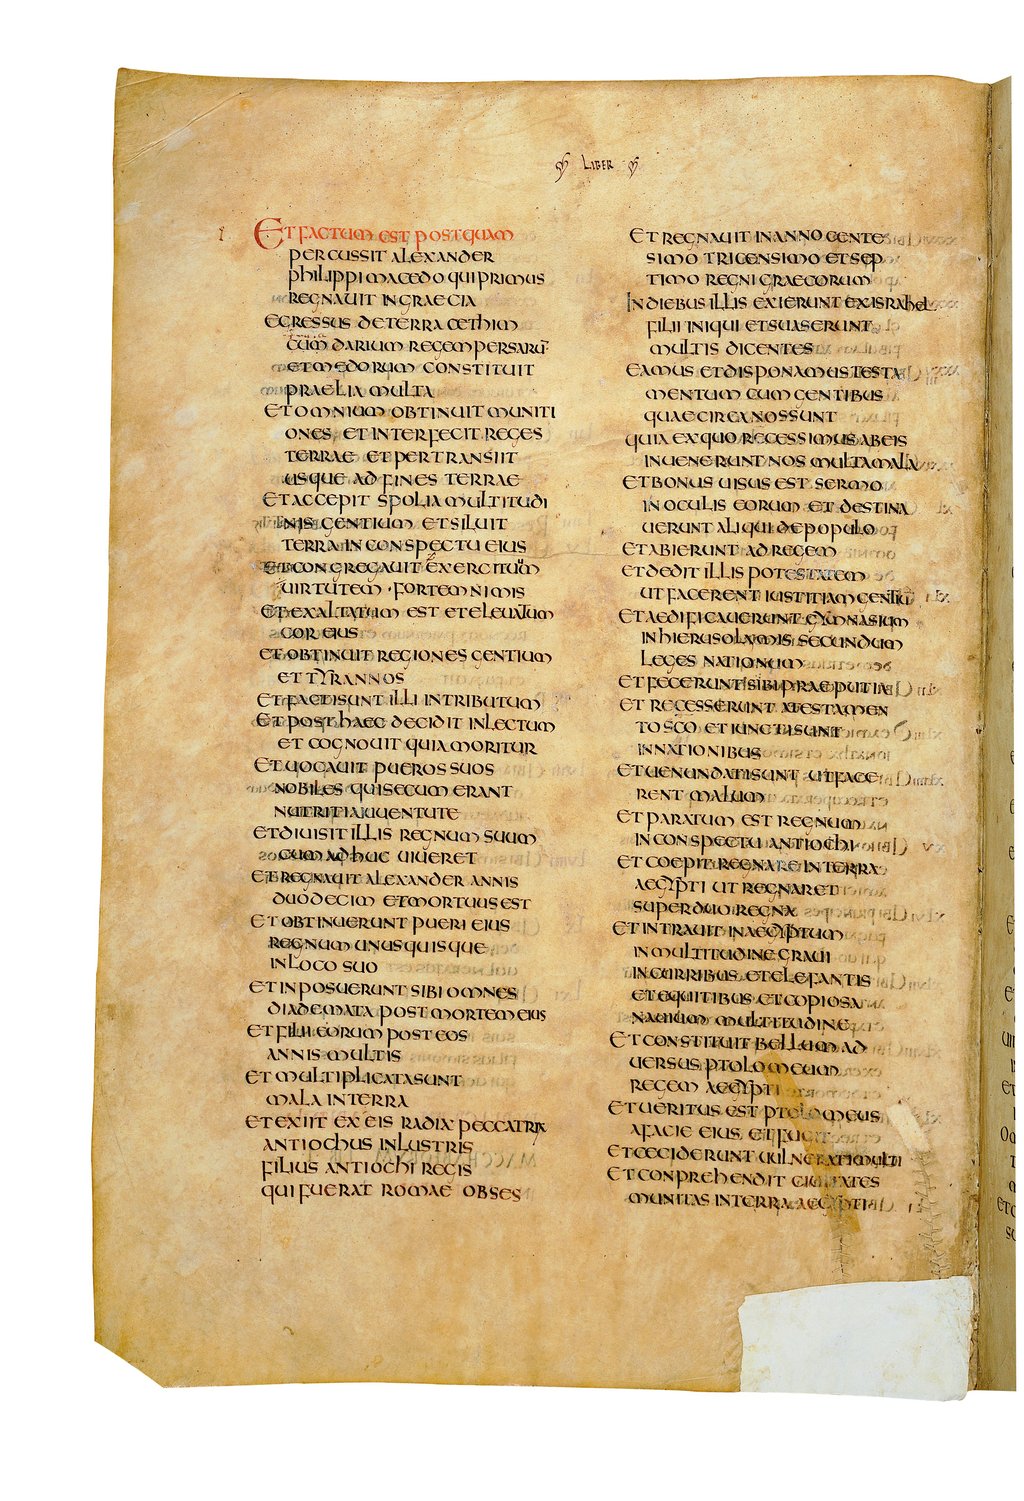 LIBER
I
ET FACTUM EST POSTQUAM
PERCUSSIT ALEXANDER
PHILIPPI MACEDO QUI PRIMUS
REGNAUIT IN GRAECIA
EGRESSUS DE TERRA CETHIM
CUM DARIUM REGEM PERSARŪ
ET MEDORUM CONSTITUIT
PRAELIA MULTA
ET OMNIUM OBTINUIT MUNITI
ONES ET INTERFECIT REGES
TERRAE ET PERTRANSIIT
USQUE AD FINES TERRAE
ET ACCEPIT SPOLIA MULTITUDI
NIS GENTIUM ET SILUIT
TERRA IN CONSPECTU EIUS
ET CONGREGAUIT EXERCITUM
UIRTUTEM FORTEM NIMIS
ET EXALTATUM EST ET ELEUATUM
COR EIUS
ET OBTINUIT REGIONES GENTIUM
ET TYRANNOS
ET FACTI SUNT ILLI IN TRIBUTUM
ET POST HAEC DECIDIT IN LECTUM
ET COGNOUIT QUIA MORITUR
ET UOCAUIT PUEROS SUOS
NOBILES QUI SECUM ERANT
NUTRITI A IUUENTUTE
ET DIUISIT ILLIS REGNUM SUUM
CUM ADHUC UIUERET
ET REGNAUIT ALEXANDER ANNIS
DUODECIM ET MORTUUS EST
ET OBTINUERUNT PUERI EIUS
REGNUM UNUSQUISQUE
IN LOCO SUO
ET INPOSUERUNT SIBI OMNES
DIADEMATA POST MORTEM EIUS
ET FILII EORUM POST EOS
ANNIS MULTIS
ET MULTIPLICATA SUNT
MALA IN TERRA
ET EXIIT EX EIS RADIX PECCATRIX
ANTIOCHUS INLUSTRIS
FILIUS ANTIOCHI REGIS
QUI FUERAT ROMAE OBSES
ET REGNAUIT IN ANNO CENTE
SIMO TRICENSIMO ET SEP
TIMO REGNI GRAECORUM
IN DIEBUS ILLIS EXIERUNT EX ISRAHEL
FILII INIQUI ET SUASERUNT
MULTIS DICENTES
EAMUS ET DISPONAMUS TESTA
MENTUM CUM GENTIBUS
QUAE CIRCA NOS SUNT
QUIA EX QUO RECESSIMUS AB EIS
INUENERUNT NOS MULTA MALA
ET BONUS UISUS EST SERMO
IN OCULIS EORUM ET DESTINA
UERUNT ALIQUI DE POPULO
ET ABIERUNT AD REGEM
ET DEDIT ILLIS POTESTATEM
UT FACERENT IUSTITIAM GENTIŪ
ET AEDIFICAUERUNT GYMNASIUM
IN HIERUSOLYMIS SECUNDUM
LEGES NATIONUM
ET FECERUNT SIBI PRAEPUTIA
ET RECESSERUNT A TESTAMEN
TO SCO ET IUNCTI SUNT
IN NATIONIBUS
ET UENUNDATI SUNT UT FACE
RENT MALUM
ET PARATUM EST REGNUM
IN CONSPECTU ANTIOCHI
ET COEPIT REGNARE IN TERRA
AEGYPTI UT REGNARET
SUPER DUO REGNA
ET INTRAUIT IN AEGYPTUM
IN MULTITUDINE GRAUI
IN CURRIBUS ET ELEFANTIS
ET EQUITIBUS ET COPIOSA
NAUIUM MULTITUDINE
ET CONSTITUIT BELLUM AD
UERSUS PTOLOMEUM
REGEM AEGYPTI
ET UERITUS EST PTOLOMEUS
A FACIE EIUS ET FUGIT
ET CECIDERUNT UULNERATI MULTI
ET CONPREHENDIT CIUITATES
MUNITAS IN TERRA AEGYPTI